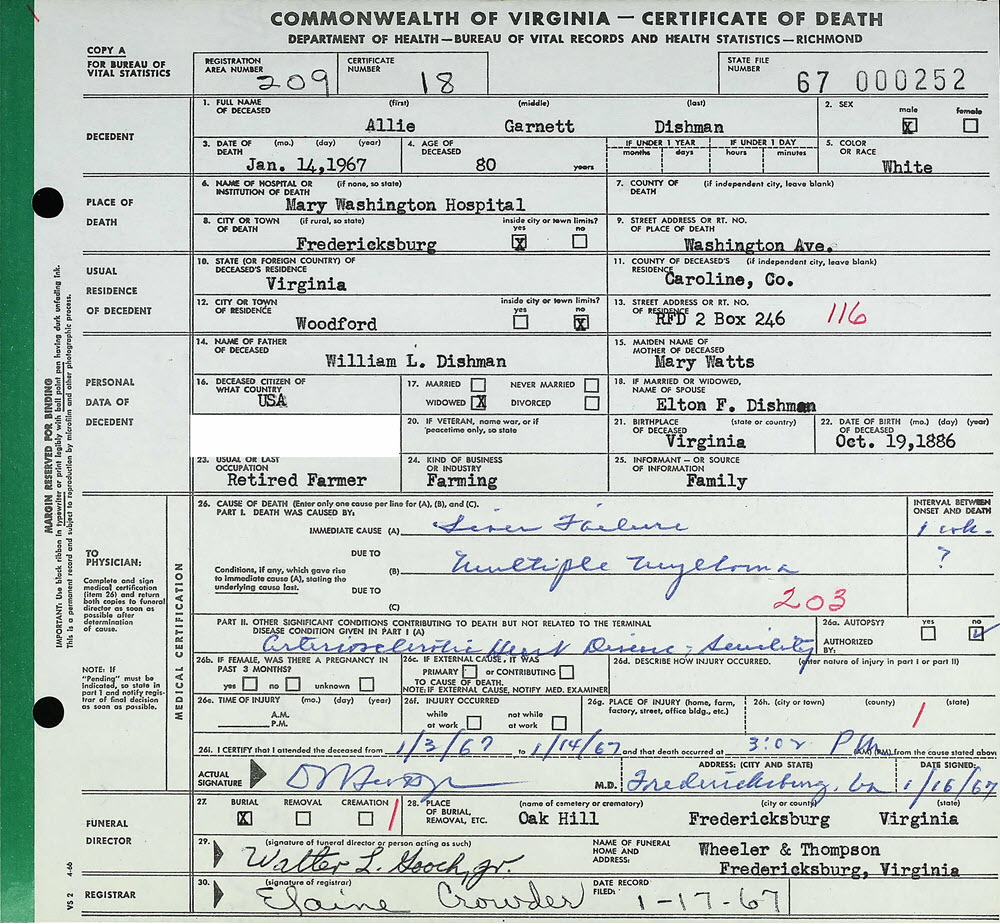 COMMONWEALTH OF VIRGINIA — CERTIFICATE OF DEATH
DEPARTMENT OF HEALTH—BUREAU OF VITAL RECORDS AND HEALTH STATISTICS—RICHMOND
COPY A
FOR BUREAU OF VITAL STATISTICS
REGISTRATION AREA NUMBER 209
CERTIFICATE NUMBER 18
STATE FILE NUMBER 67 000252
DECEDENT
1. FULL NAME OF DECEASED (first) (middle) (last)
Allie Garnett Dishman
2. SEX male X female
3. DATE OF DEATH (mo.) (day) (year)
Jan. 14,1967
4. AGE OF DECEASED 80 years
IF UNDER 1 YEAR months days
IF UNDER 1 DAY hours minutes
5. COLOR OR RACE White
PLACE OF DEATH
6. NAME OF HOSPITAL OR INSTITUTION OF DEATH (if none, so state)
Mary Washington Hospital
7. COUNTY OF DEATH (if independent city, leave blank)
8. CITY OR TOWN OF DEATH (if rural, so state) inside city or town limits? yes X no
Fredericksburg
9. STREET ADDRESS OR RT. NO. OF PLACE OF DEATH
Washington Ave.
USUAL RESIDENCE OF DECEDENT
10. STATE (OR FOREIGN COUNTRY) OF DECEASED'S RESIDENCE
Virginia
11. COUNTY OF DECEASED'S RESIDENCE (if independent city, leave blank)
Caroline, Co.
12. CITY OR TOWN OF RESIDENCE inside city or town limits? yes no X
Woodford
13. STREET ADDRESS OR RT. NO. OF RESIDENCE
RFD 2 Box 246 116
PERSONAL DATA OF DECEDENT
14. NAME OF FATHER OF DECEASED
William L. Dishman
15. MAIDEN NAME OF MOTHER OF DECEASED
Mary Watts
16. DECEASED CITIZEN OF WHAT COUNTRY
USA
17. MARRIED NEVER MARRIED
WIDOWED X DIVORCED
18. IF MARRIED OR WIDOWED, NAME OF SPOUSE
Elton F. Dishman
20. IF VETERAN, name war, or if peacetime only, so state
21. BIRTHPLACE OF DECEASED (state or country)
Virginia
22. DATE OF BIRTH OF DECEASED (mo.) (day) (year)
Oct. 19,1886
23. USUAL OR LAST OCCUPATION
Retired Farmer
24. KIND OF BUSINESS OR INDUSTRY
Farming
25. INFORMANT—OR SOURCE OF INFORMATION
Family
MARGIN RESERVED FOR BINDING
IMPORTANT: Use black ribbon in typewriter or print legibly with ball point pen having dark unfading ink.
This is a permanent record and subject to reproduction by microfilm and other photographic process.
TO PHYSICIAN:
Complete and sign medical certification (item 26) and return both copies to funeral director as soon as possible after determination of cause.
NOTE: If "Pending" must be indicated, so state in part 1 and notify registrar of final decision as soon as possible.
MEDICAL CERTIFICATION
26. CAUSE OF DEATH (Enter only one cause per line for (A), (B), and (C).
PART I. DEATH WAS CAUSED BY:
INTERVAL BETWEEN ONSET AND DEATH
IMMEDIATE CAUSE (A) Liver Failure 1 wk.
DUE TO
Conditions, if any, which gave rise to immediate cause (A), stating the underlying cause last.
(B) Multiple Myeloma ?
DUE TO
(C)
203
PART II. OTHER SIGNIFICANT CONDITIONS CONTRIBUTING TO DEATH BUT NOT RELATED TO THE TERMINAL DISEASE CONDITION GIVEN IN PART I (A)
Arteriosclerotic Heart Disease; Senility
26a. AUTOPSY? yes no ✓
AUTHORIZED BY:
26b. IF FEMALE, WAS THERE A PREGNANCY IN PAST 3 MONTHS?
yes no unknown
26c. IF EXTERNAL CAUSE, IT WAS
PRIMARY or CONTRIBUTING
TO CAUSE OF DEATH.
NOTE: IF EXTERNAL CAUSE, NOTIFY MED. EXAMINER
26d. DESCRIBE HOW INJURY OCCURRED. (enter nature of injury in part I or part II)
26e. TIME OF INJURY (mo.) (day) (year)
A.M.
P.M.
26f. INJURY OCCURRED
while at work not while at work
26g. PLACE OF INJURY (home, farm, factory, street, office bldg., etc.)
26h. (city or town) (county) (state)
26i. I CERTIFY that I attended the deceased from 1/3/67 to 1/14/67 and that death occurred at 3:02 PM (AM) (PM) from the cause stated above
ACTUAL SIGNATURE M.D.
ADDRESS: (CITY AND STATE)
Fredericksburg, Va
DATE SIGNED:
1/16/67
FUNERAL DIRECTOR
27. BURIAL X REMOVAL CREMATION
28. PLACE OF BURIAL, REMOVAL, ETC. (name of cemetery or crematory) (city or county) (state)
Oak Hill Fredericksburg Virginia
29. (signature of funeral director or person acting as such)
Walter L. Gooch, Jr.
NAME OF FUNERAL HOME AND ADDRESS:
Wheeler & Thompson
Fredericksburg, Virginia
REGISTRAR
30. (signature of registrar)
Elaine Crowder
DATE RECORD FILED: 1-17-67
VS 2 4-66